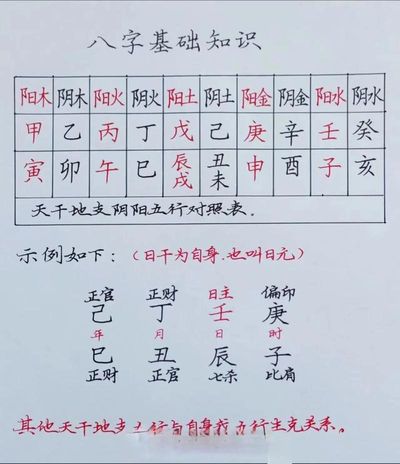 八字基础知识
阳木 阴木 阳火 阴火 阳土 阴土 阳金 阴金 阳水 阴水
甲 乙 丙 丁 戊 己 庚 辛 壬 癸
寅 卯 午 巳 辰戌 丑未 申 酉 子 亥
天干地支阴阳五行对照表.
示例如下:(日干为自身.也叫日元)
正官 正财 日主 偏印
己 丁 壬 庚
年 月 日 时
巳 丑 辰 子
正财 正官 七杀 比肩
其他天干地支五行与自身我五行生克关系。